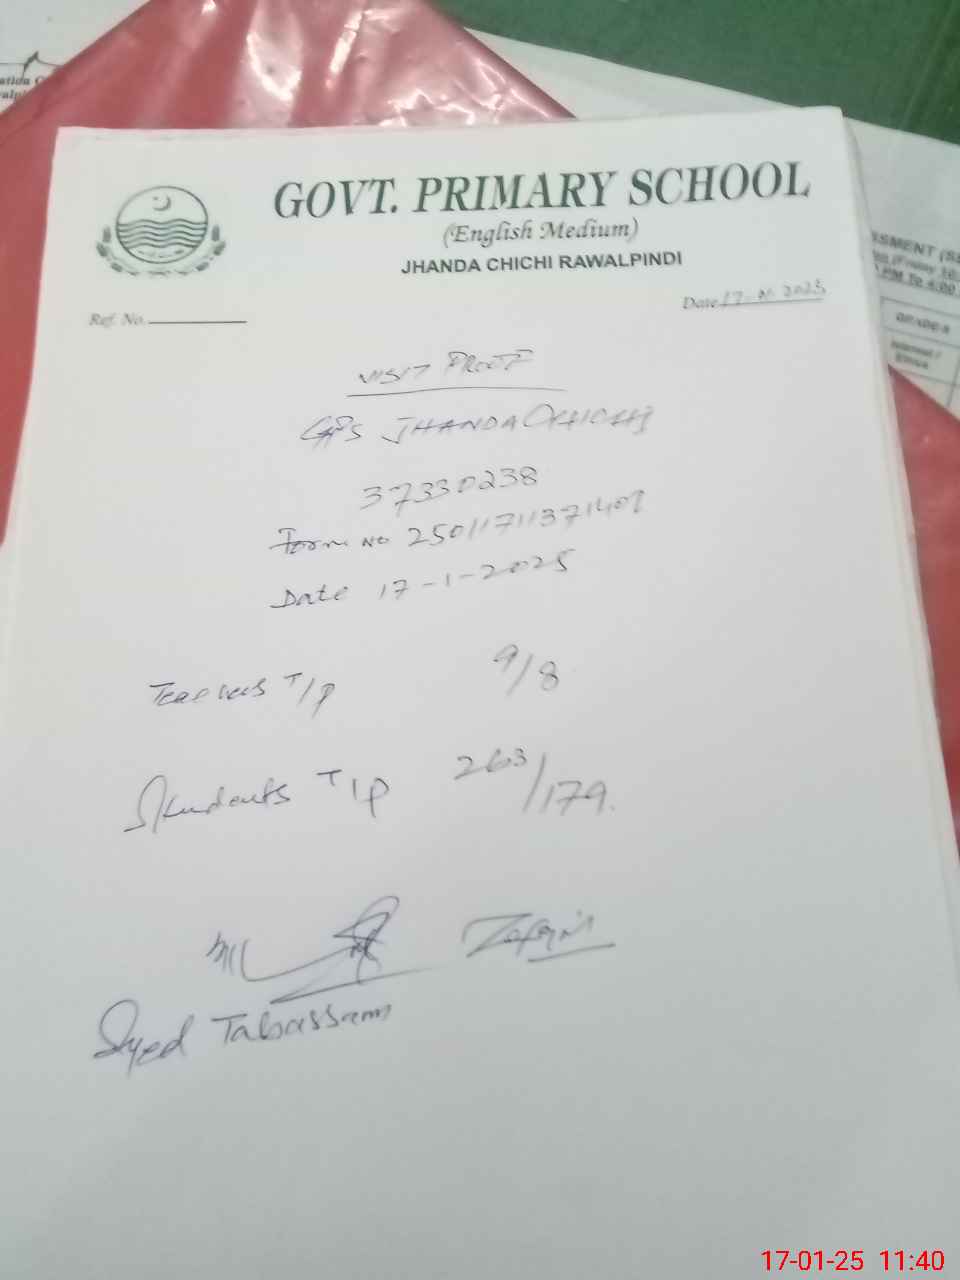 GOVT. PRIMARY SCHOOL
(English Medium)
JHANDA CHICHI RAWALPINDI
Date 17-01-2025
Ref. No.
VISIT PROOF
GPS JHANDA CHICHI
37330238
Form No 25011711371407
Date 17-1-2025
Teachers T/P 9/8
Students T/P 263/179.
Syed Tabassam
SSMENT (S
PM To 4:00
GRADE-8
17-01-25 11:40